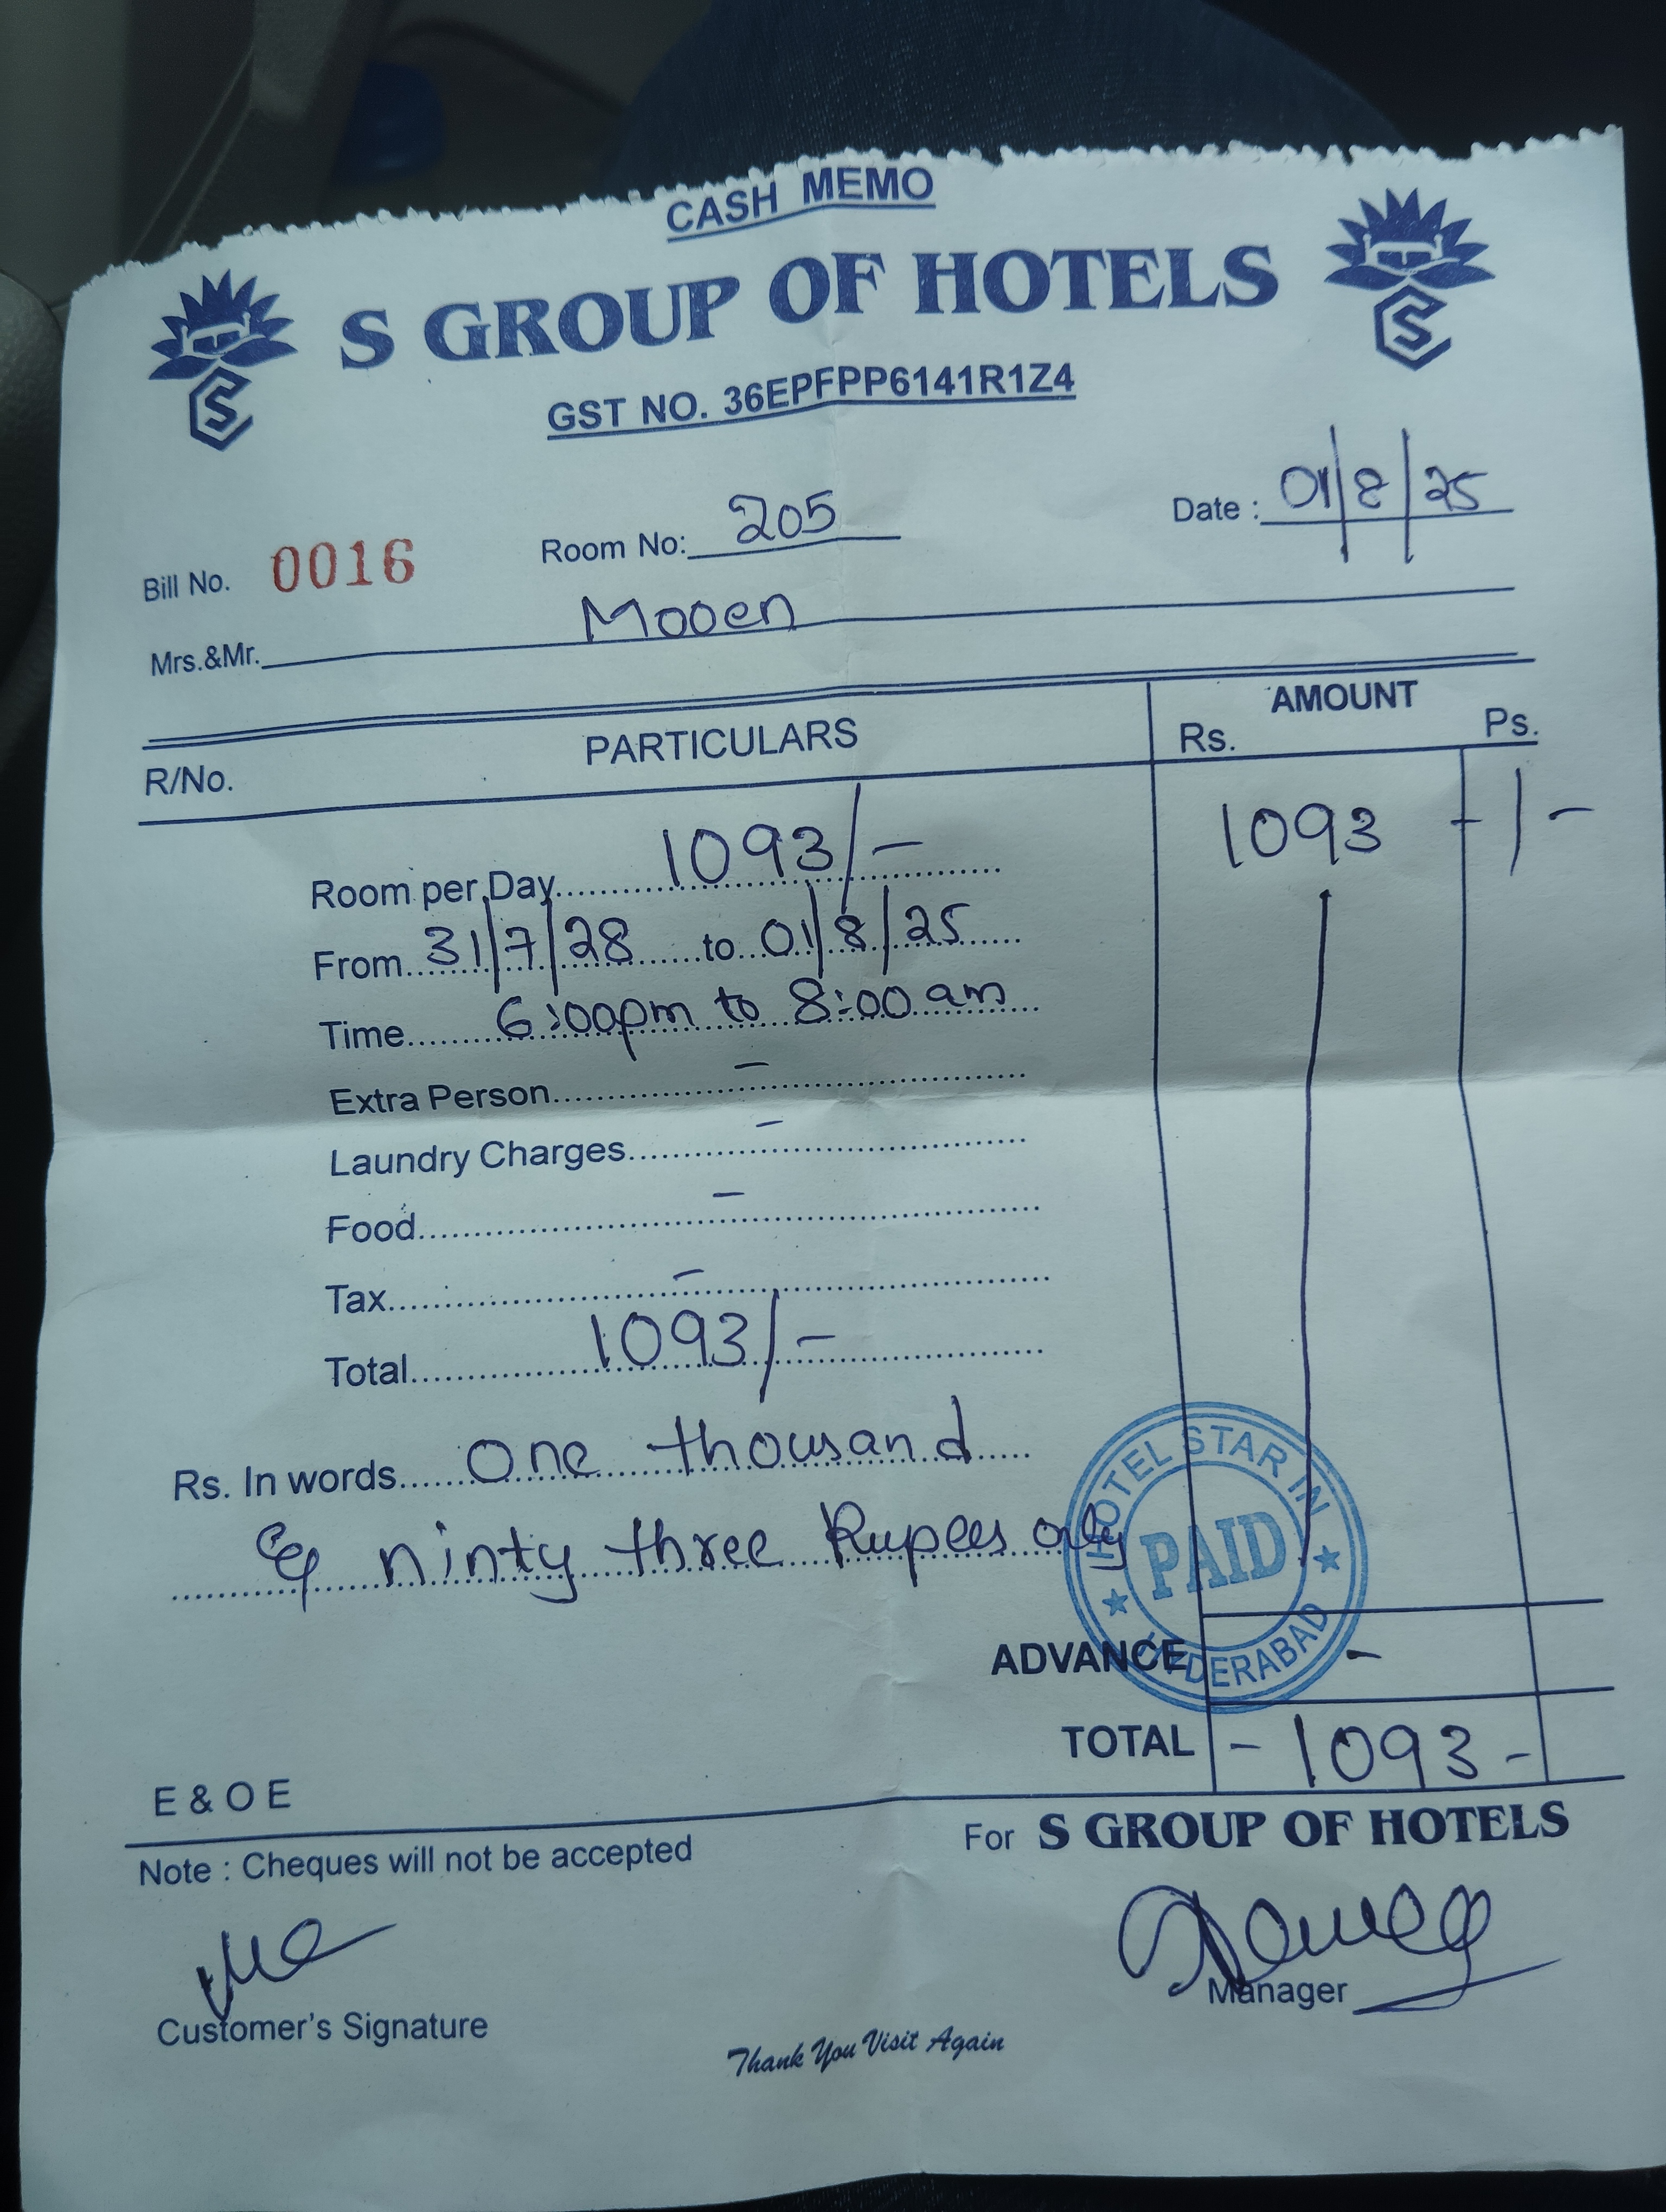 CASH MEMO
S GROUP OF HOTELS
GST NO. 36EPFPP6141R1Z4
Bill No. 0016 Room No: 205 Date : 01/8/25
Mrs.&Mr. Mooen
R/No. PARTICULARS AMOUNT Rs. Ps.
Room per Day 1093/- 1093 -/-
From 31/7/28 to 01/8/25
Time 6:00pm to 8:00 am
Extra Person -
Laundry Charges -
Food -
Tax -
Total 1093/-
Rs. In words One thousand
& ninty three Rupees only
HOTEL STAR IN
PAID
HYDERABAD
ADVANCE -
TOTAL - 1093 -
E & O E
Note : Cheques will not be accepted
For S GROUP OF HOTELS
Customer's Signature
Manager
Thank You Visit Again